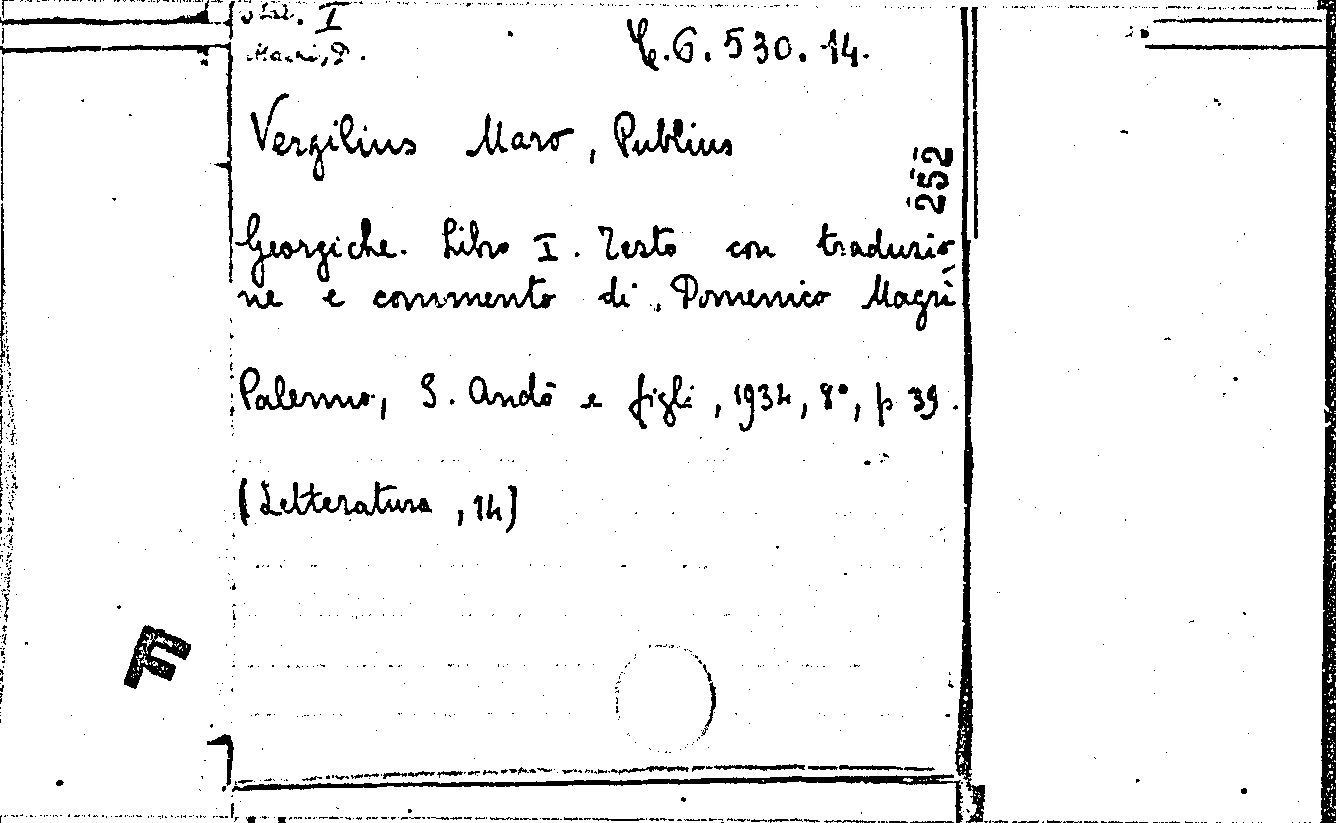 I
C.6.530.14.
Vergilius Maro, Publius
252
Georgiche. Libro I. Testo con traduzio
ne e commento di Domenico Magrì
Palermo, S. Andò e figli, 1934, 8°, p. 39.
(Letteratura, 14)
F